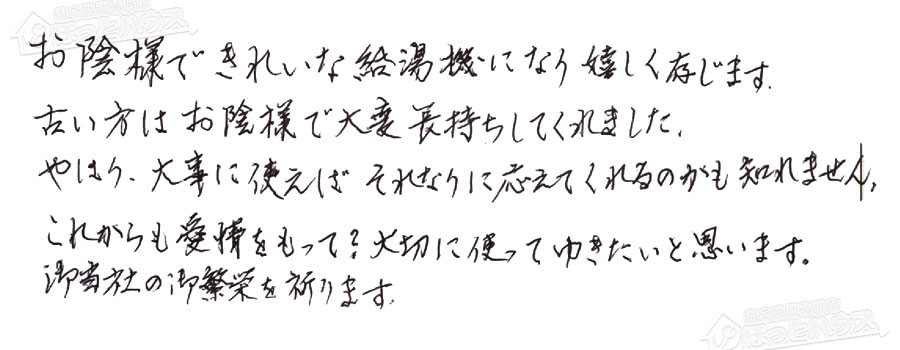 お陰様できれいな給湯機になり嬉しく存じます.
古い方はお陰様で大変長持ちしてくれました.
やはり、大事に使えばそれなりに応えてくれるのかも知れません,
これからも愛情をもって?大切に使ってゆきたいと思います。
御当社の御繁栄を祈ります.
ほっとハウス
ほっとハウス